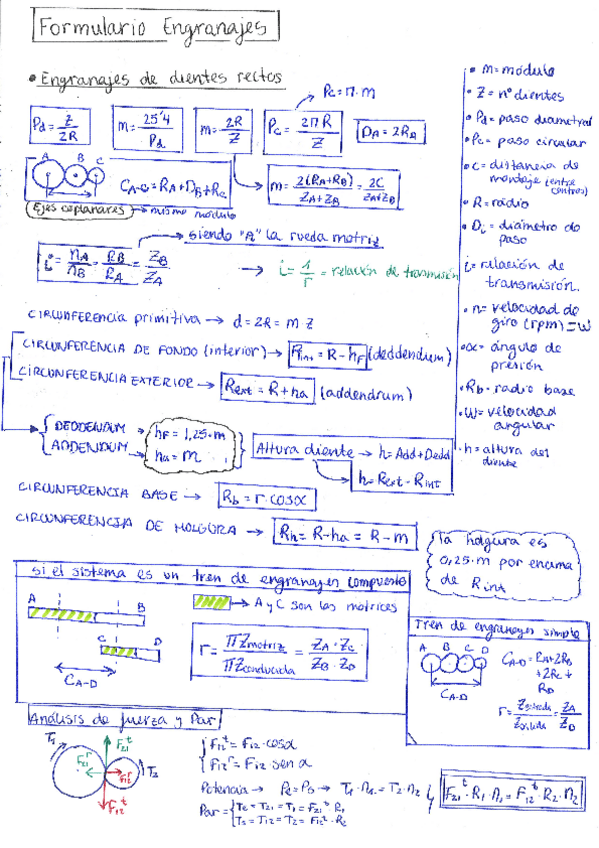 Formulario Engranajes
• Engranajes de dientes rectos
Pc = π·m
Pd = Z/2R
m = 25'4/Pd
m = 2R/Z
Pc = 2πR/Z
DA = 2RA
A B C
CA-C = RA + DB + RC
m = 2(RA+RB)/ZA+ZB = 2C/ZA+ZB
Ejes coplanares → mismo módulo
siendo "A" la rueda motriz
i = nA/nB = RB/RA = ZB/ZA
→ i = 1/r = relación de transmisión
CIRCUNFERENCIA primitiva → d = 2R = m·Z
CIRCUNFERENCIA DE FONDO (interior) → Rint = R - hF (deddendum)
CIRCUNFERENCIA EXTERIOR → Rext = R + ha (addendrum)
DEDDENDUM → hF = 1,25·m
ADDENDUM → ha = m
Altura diente → h = Add + Dedd
h = Rext - Rint
CIRCUNFERENCIA BASE → Rb = r·cosα
CIRCUNFERENCIA DE HOLGURA → Rh = R - ha = R - m
• m = módulo
• Z = nº dientes
• Pd = paso diametral
• Pc = paso circular
• C = distancia de
montaje (entre
centros)
• R = radio
• Di = diámetro de
paso
i = relación de
transmisión.
• n = velocidad de
giro (rpm) = W
• α = ángulo de
presión
• Rb = radio base
• W = velocidad
angular
• h = altura del
diente
la holgura es
0,25·m por encima
de Rint
si el sistema es un tren de engranajes compuesto
A B
→ A y C son las motrices
C D
CA-D
r = πZmotriz/πZconducida = ZA·ZC/ZB·ZD
Tren de engranajes simple
A B C D
CA-D = RA+2RB
+2RC+
RD
CA-D
r = Zentrada/Zsalida = ZA/ZD
Análisis de fuerza y Par
T1 F21t
F21r F12r T2
F12t
F12t = F12·cosα
F12r = F12·senα
Potencia → Pe = Ps → T1·n1 = T2·n2
F21t·R1·n1 = F12t·R2·n2
Par = Te = T21 = T1 = F21t·R1
Ts = T12 = T2 = F12t·R2